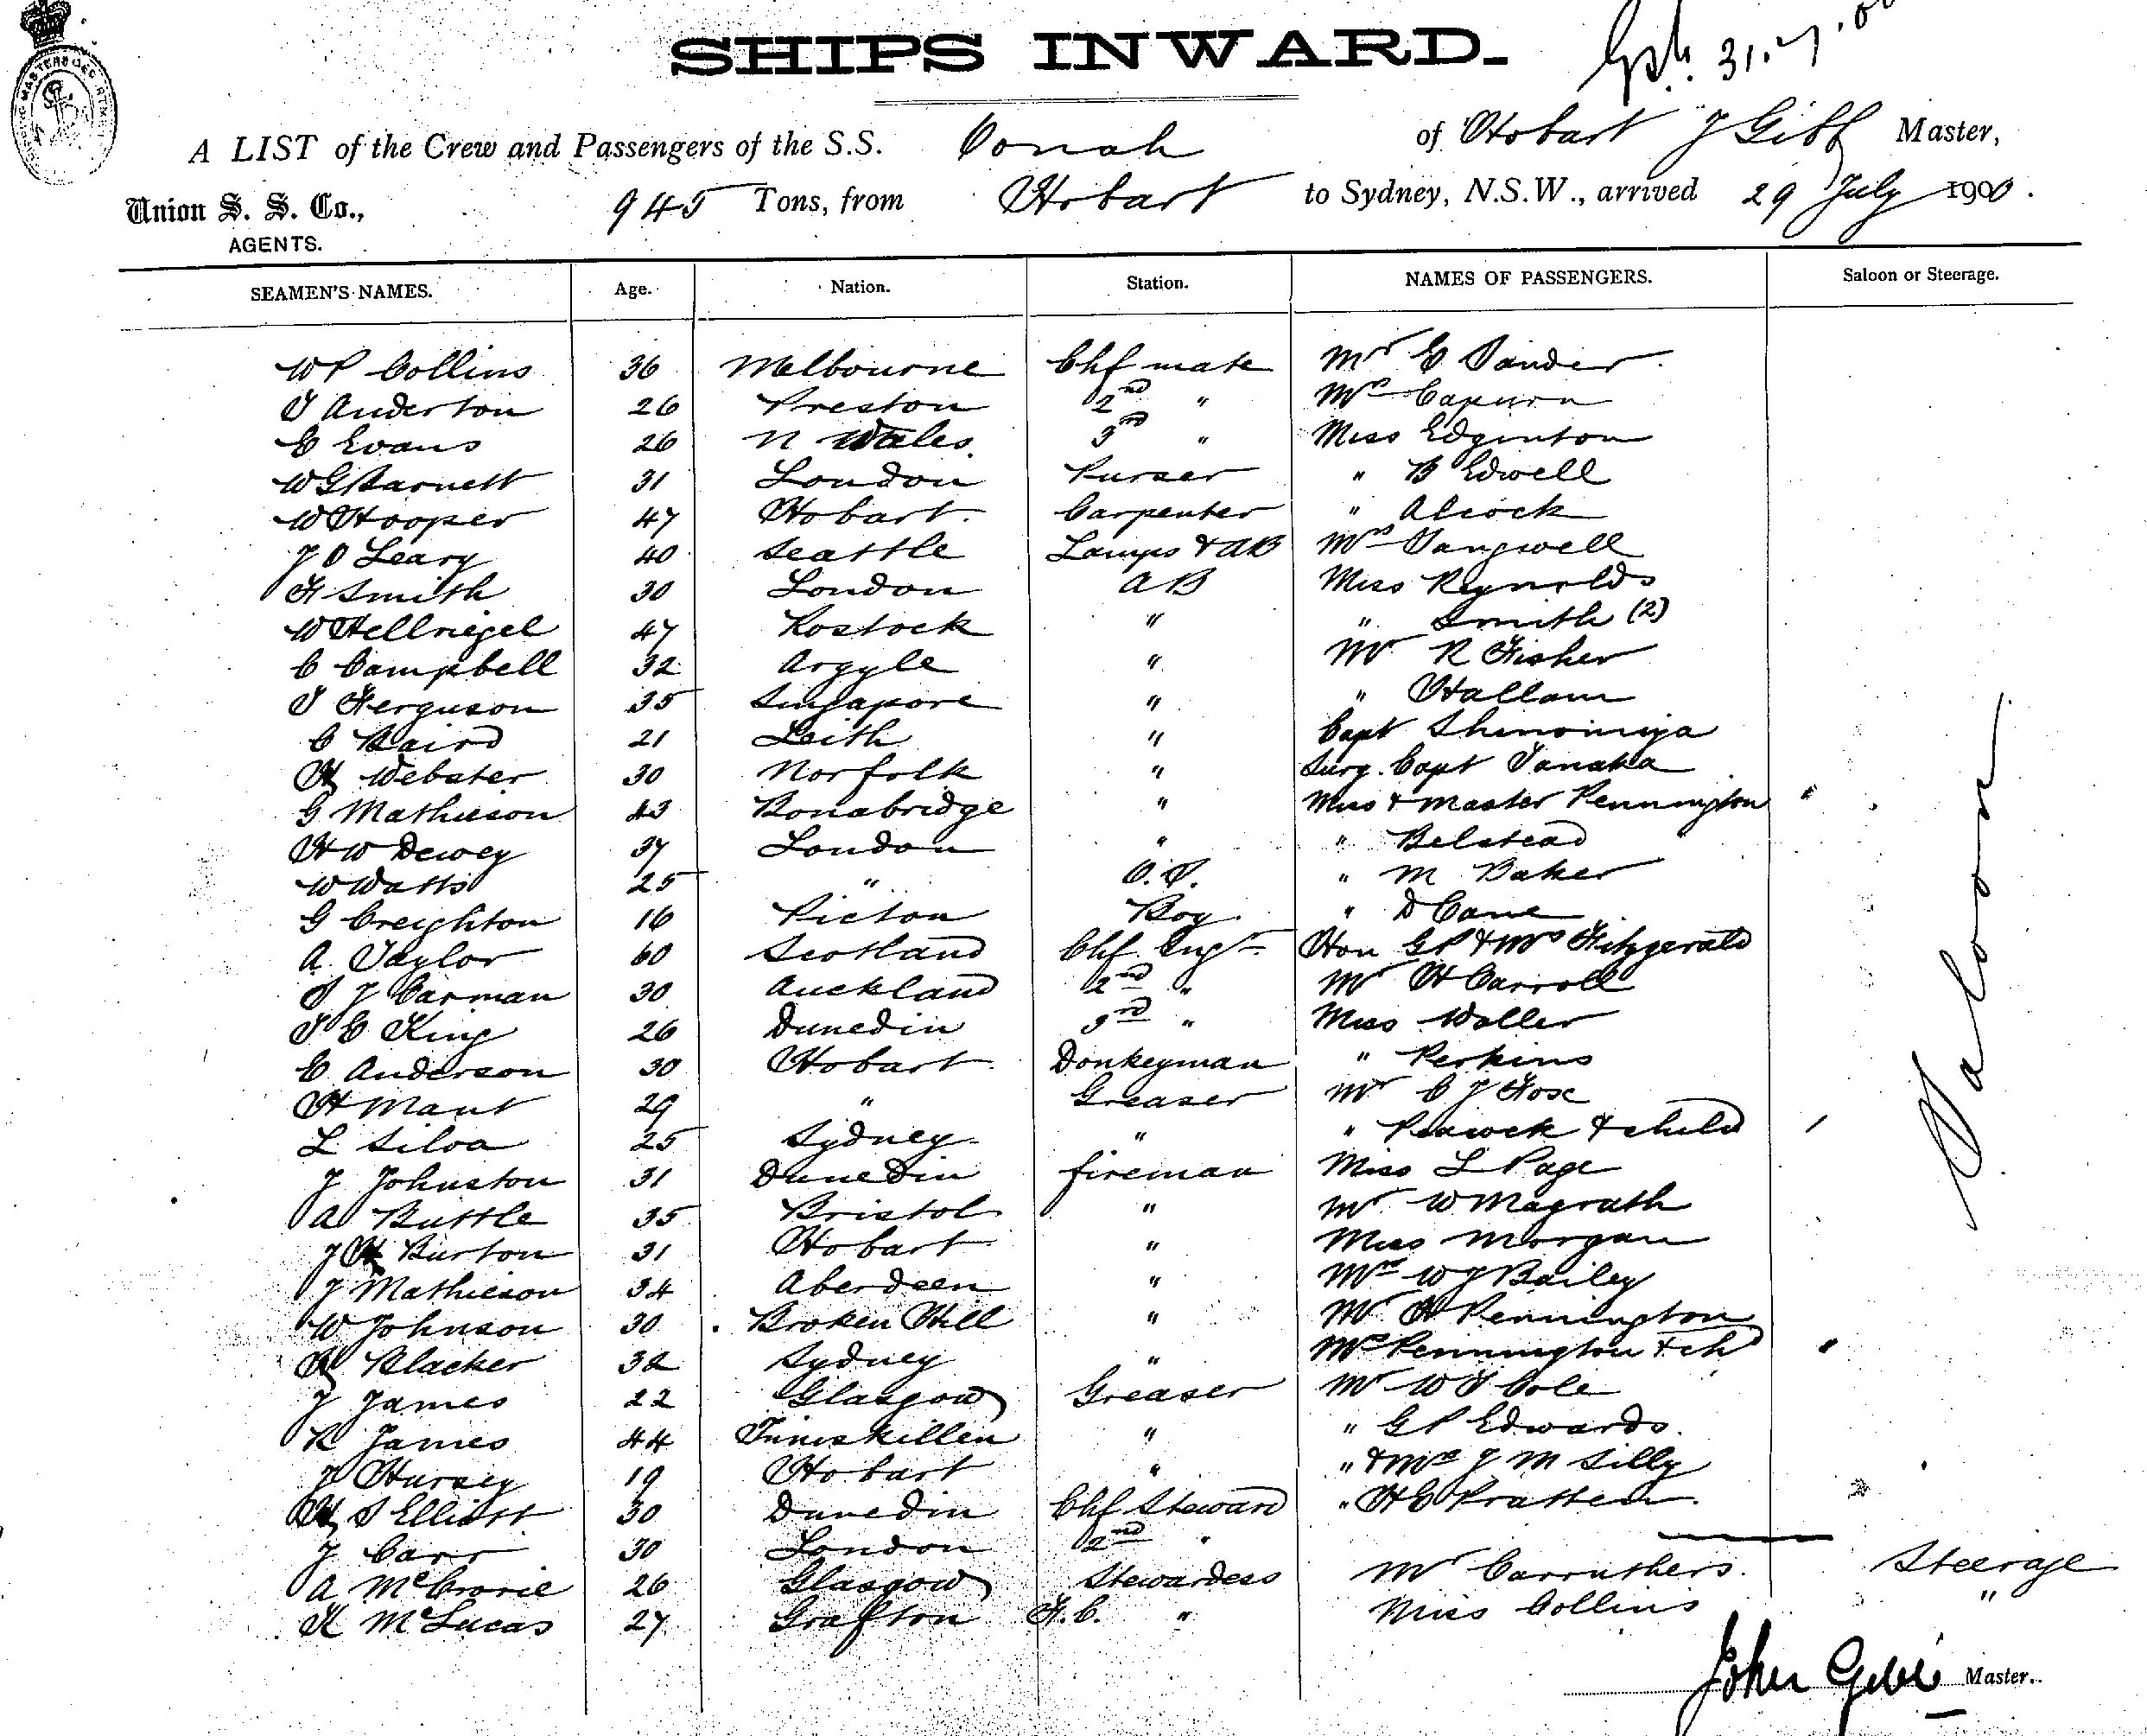 SHIPS INWARD.
31.7.00
A LIST of the Crew and Passengers of the S.S. Oonah of Hobart J Gibb Master,
Union S. S. Co., 945 Tons, from Hobart to Sydney, N.S.W., arrived 29 July 1900.
AGENTS.
SEAMEN'S NAMES. Age. Nation. Station. NAMES OF PASSENGERS. Saloon or Steerage.
W P Collins 36 Melbourne Chf mate Mr E Sander
T Anderton 26 Preston 2nd " Mrs Capurn
E Evans 26 N Wales 3rd " Miss Edginton
W G Barnett 31 London Purser " B Edwell
W Hooper 47 Hobart Carpenter " Alcock
J O Leary 40 Seattle Lamps & AB Mrs Tangwell
F Smith 30 London AB Miss Reynolds
W Hellriegel 47 Rostock " " Smith (2)
C Campbell 32 Argyle " Mr R Fisher
T Ferguson 35 Singapore " " Hallam
C Baird 21 Leith " Capt Shinomiya
H Webster 30 Norfolk " Surg. Capt Tanaka
G Mathieson 43 Bonabridge " Miss & Master Pennington "
H W Dewey 37 London " " Belstead
W Watts 25 " O.S. " M Baker
G Creighton 16 Picton Boy " D Cane
A Taylor 60 Scotland Chf Engr Hon G P & Mrs Fitzgerald
S J Carman 30 Auckland 2nd " Mr H Carroll
T E King 26 Dunedin 3rd " Miss Waller
E Anderson 30 Hobart Donkeyman " Perkins
H Mant 29 " Greaser Mr C J Fox
L Silva 25 Sydney " " Peacock & child
J Johnston 31 Dunedin fireman Miss L Page
A Buttle 35 Bristol " Mr W Magrath
J H Burton 31 Hobart " Miss Morgan
J Mathieson 34 Aberdeen " Mrs W J Bailey
W Johnson 30 Broken Hill " Mr H Pennington
H Blacker 32 Sydney " Mrs Pennington & ch "
J James 22 Glasgow Greaser Mr W T Cole
R James 44 Inniskillen " " G P Edwards.
J Hursey 19 Hobart " " & Mrs J M Silly
H S Elliott 30 Dunedin Chf Steward " H E Pratten
J Carr 30 London 2nd "
A McCrorie 26 Glasgow Stewardess Mr Carruthers. Steerage
K McLucas 27 Grafton F.C. " Miss Collins "
Saloon
John Gibb Master.